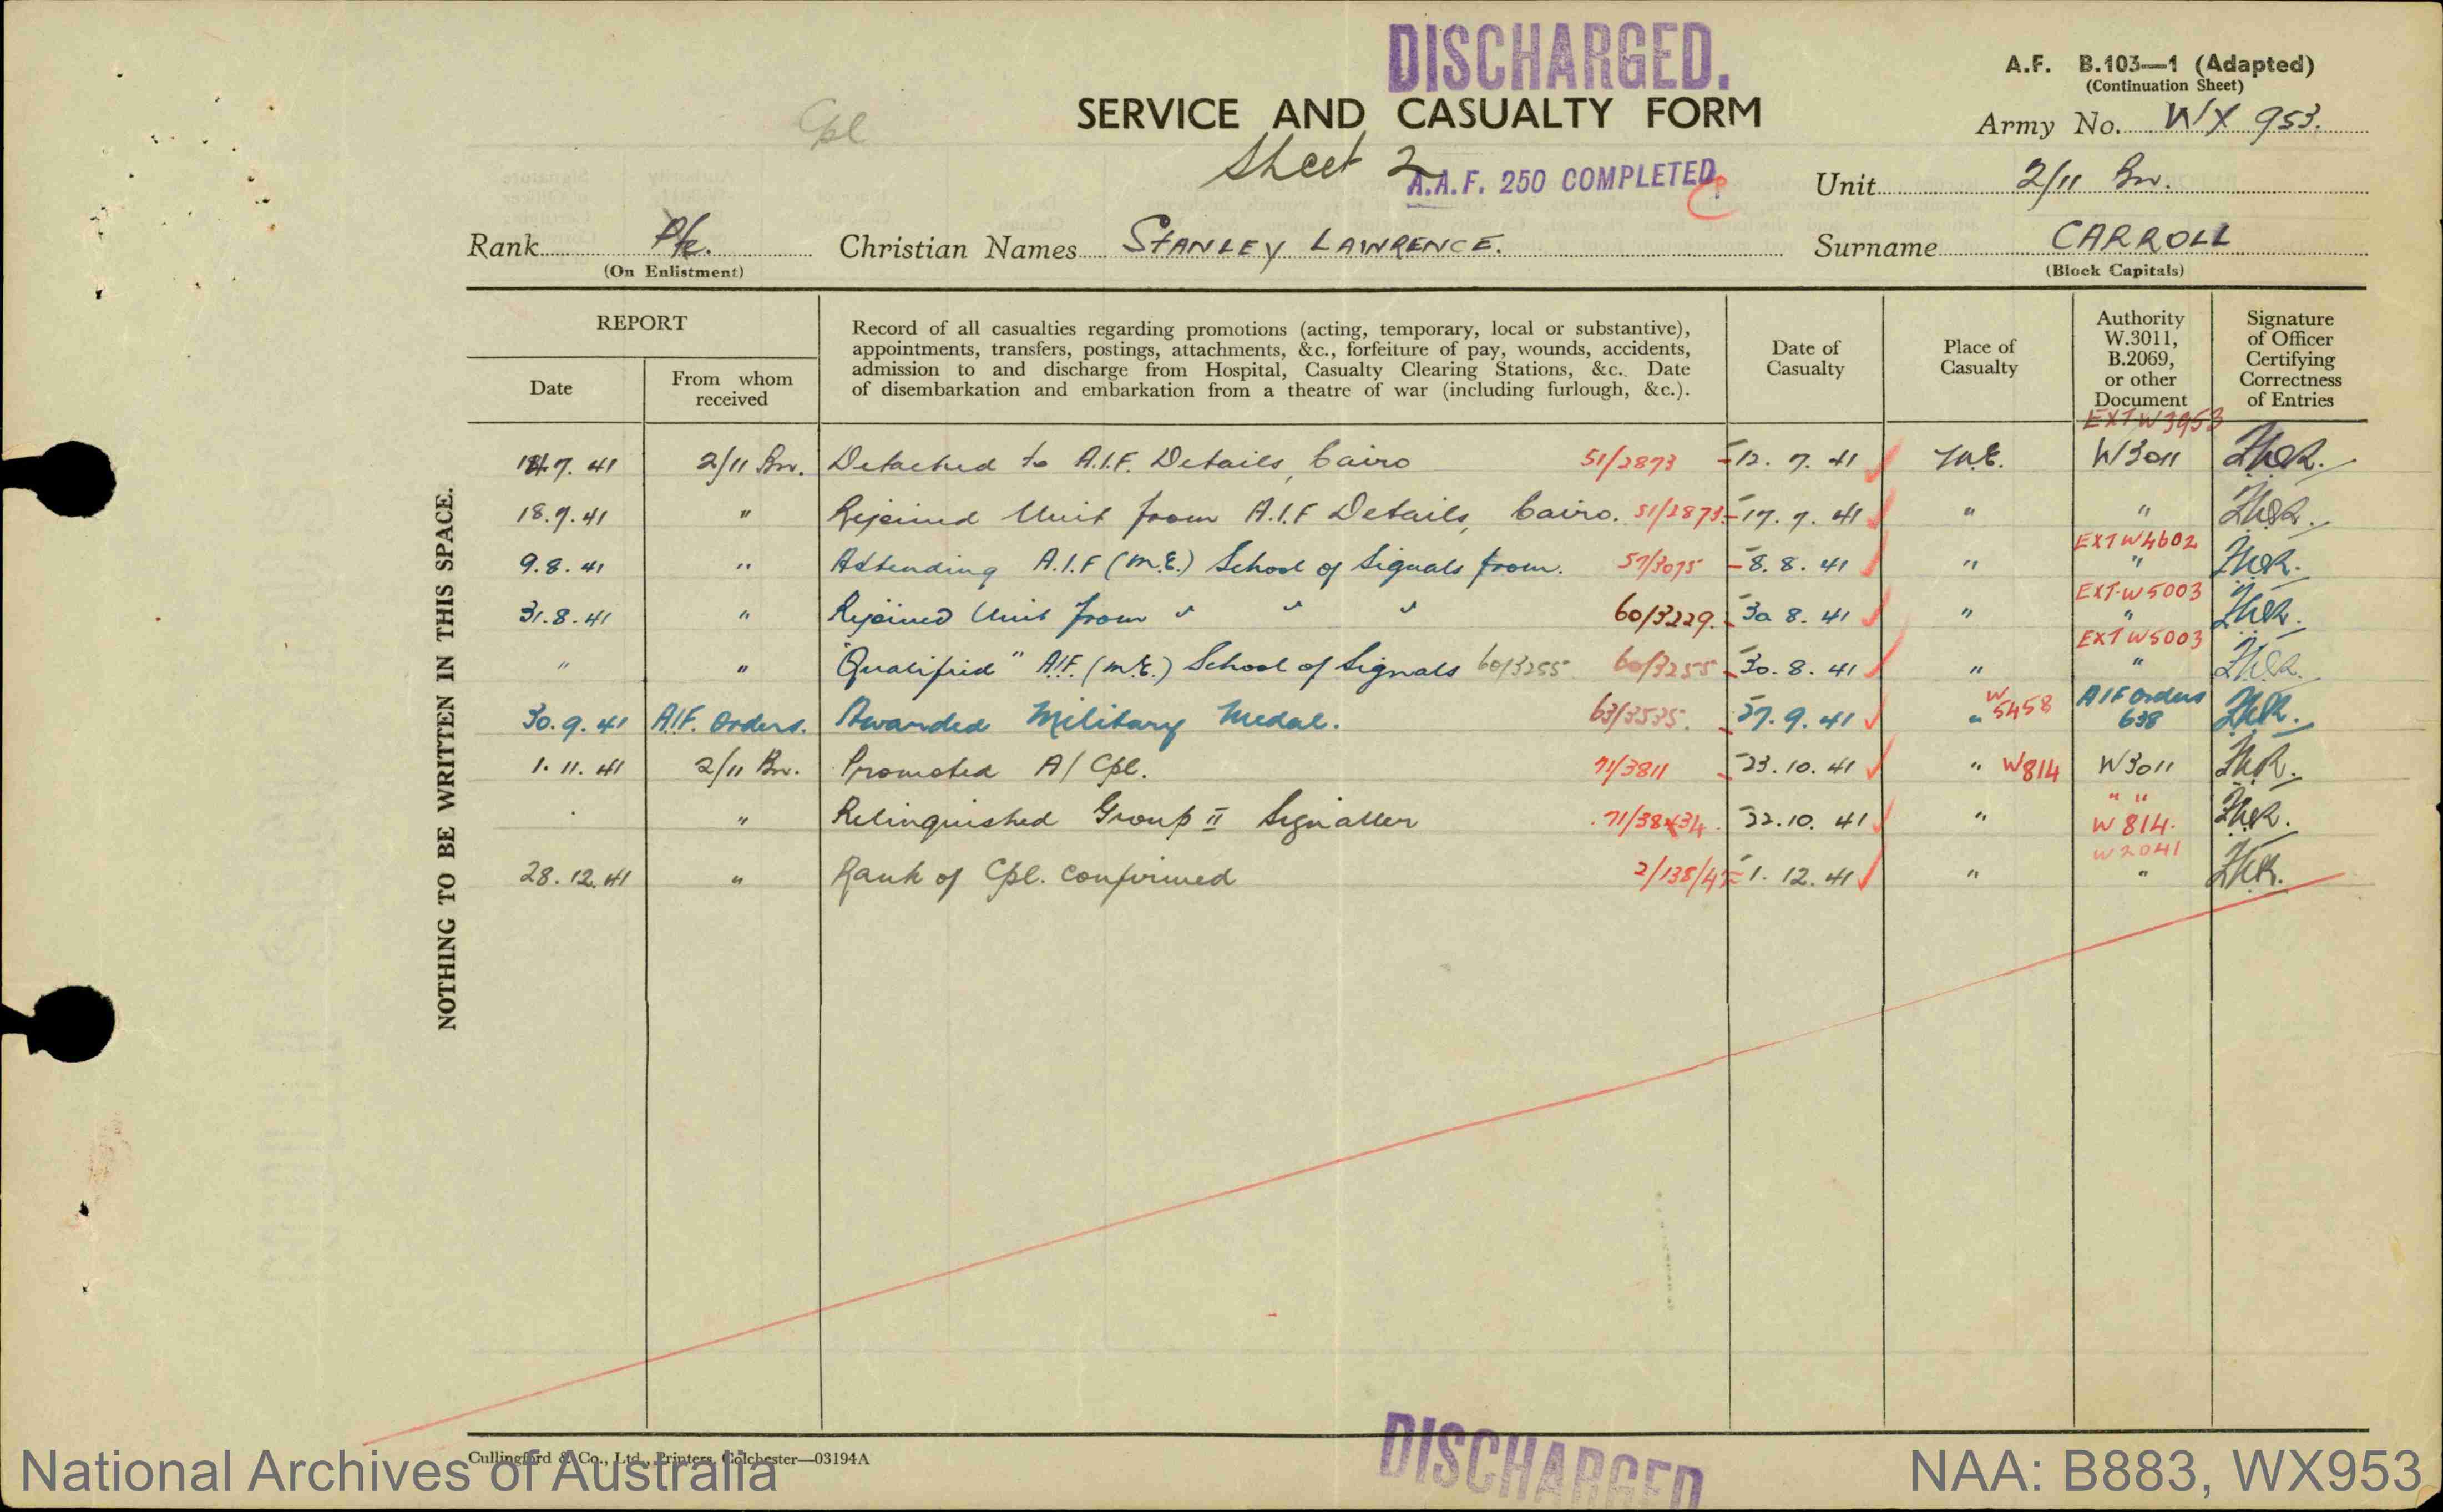 DISCHARGED.
A.F. B.103—1 (Adapted)
(Continuation Sheet)
Cpl
SERVICE AND CASUALTY FORM
Army No. WX 953.
Sheet 2
A.A.F. 250 COMPLETED
Unit 2/11 Bn.
Rank Pte. Christian Names STANLEY LAWRENCE. Surname CARROLL
(On Enlistment) (Block Capitals)
REPORT
Date
From whom received
Record of all casualties regarding promotions (acting, temporary, local or substantive),
appointments, transfers, postings, attachments, &c., forfeiture of pay, wounds, accidents,
admission to and discharge from Hospital, Casualty Clearing Stations, &c. Date
of disembarkation and embarkation from a theatre of war (including furlough, &c.).
Date of Casualty
Place of Casualty
Authority W.3011, B.2069, or other Document
Signature of Officer Certifying Correctness of Entries
EXT W3953
7. 41 2/11 Bn. Detached to A.I.F. Details, Cairo 51/2873 12. 7. 41 M.E. W3011
18.7.41 " Rejoined Unit from A.I.F Details, Cairo. 51/2873 17. 7. 41 " "
EXT W4602
9.8.41 " Attending A.I.F (M.E.) School of Signals from. 57/3075 8. 8. 41 " "
EXT W5003
31.8.41 " Rejoined Unit from " " " 60/3229. 30 8. 41 " "
EXT W5003
" " "Qualified" AIF. (M.E.) School of Signals 60/3255 60/3255 30. 8. 41 " "
30.9.41 A.I.F. Orders. Awarded Military Medal. 63/3535. 27. 9. 41 " W 5458 AIF Orders 638
1. 11. 41 2/11 Bn. Promoted A/Cpl. 71/3811 23. 10. 41 " W814 W3011
" Relinquished Group II Signaller 22. 10. 41 " " " W 814.
W2041
28. 12. 41 " Rank of Cpl. confirmed 2/138/42 1. 12. 41 " "
NOTHING TO BE WRITTEN IN THIS SPACE.
Cullingford & Co., Ltd., Printers, Colchester—03194A
DISCHARGED
National Archives of Australia
NAA: B883, WX953